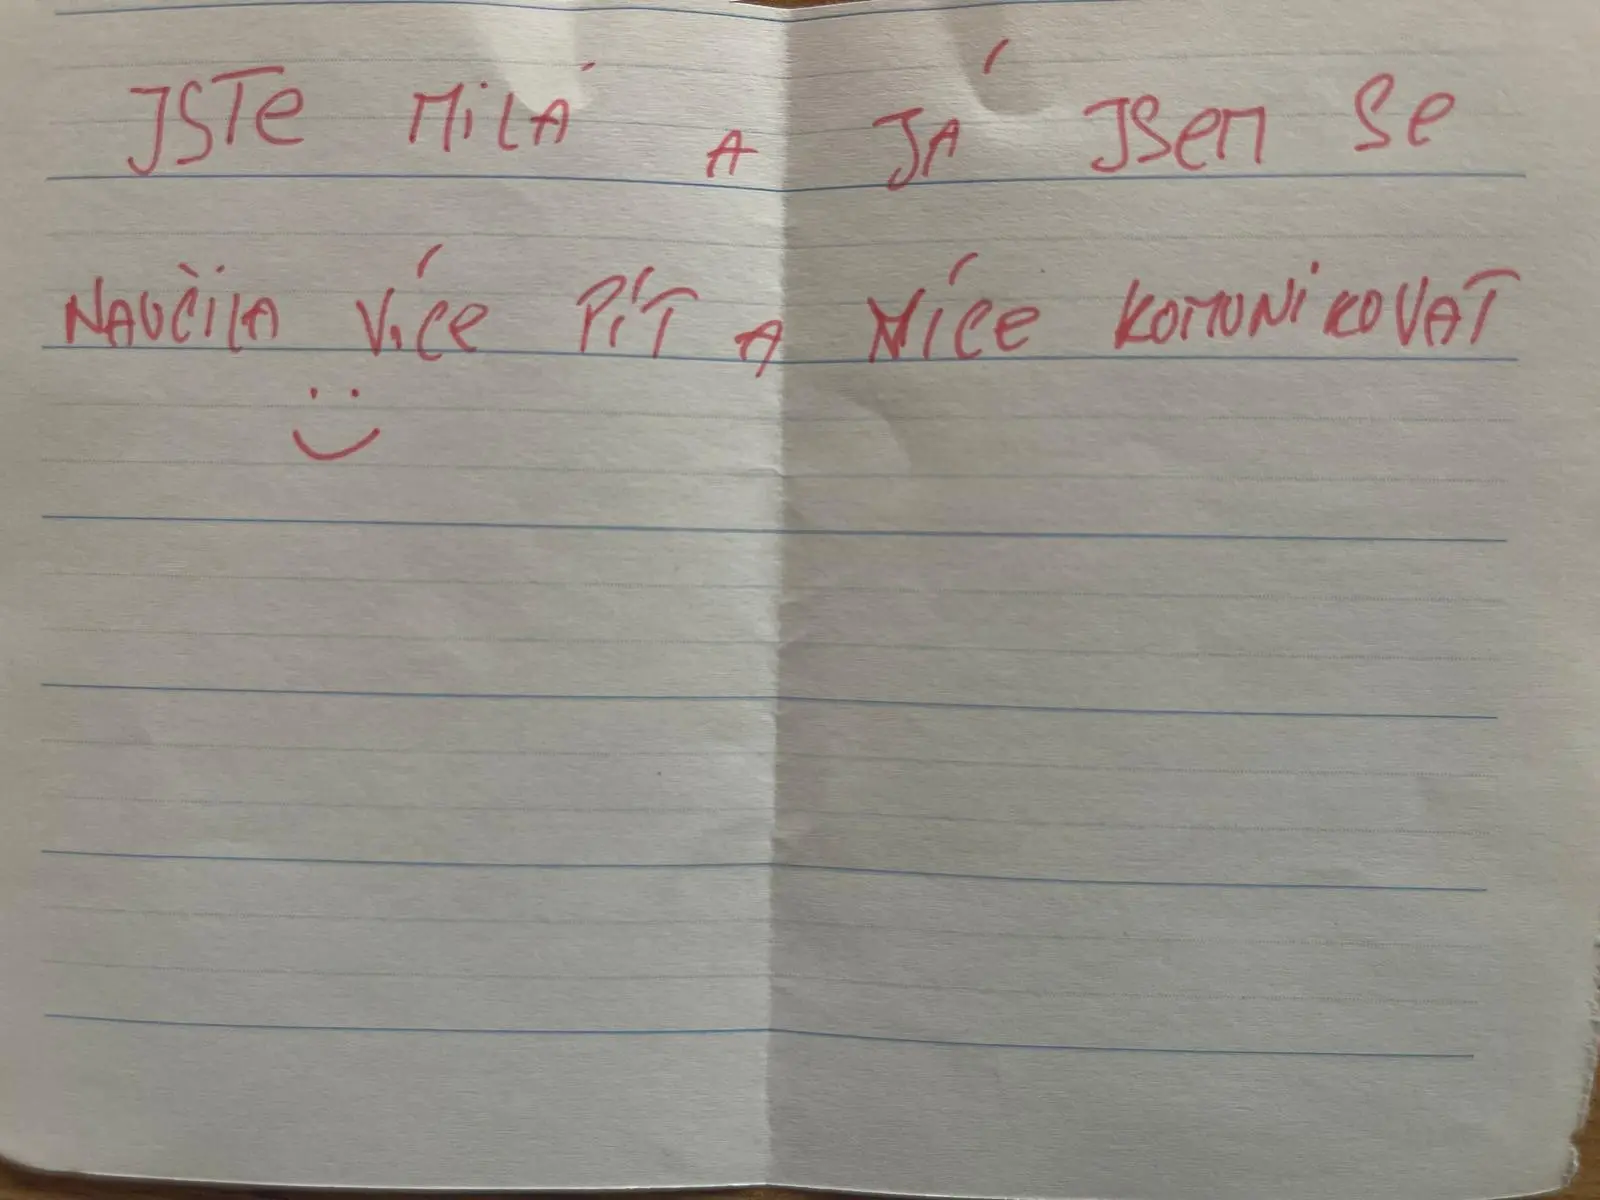 JSTE MILÁ A JÁ JSEM SE
NAUČILA VÍCE PÍT A VÍCE KOMUNIKOVAT